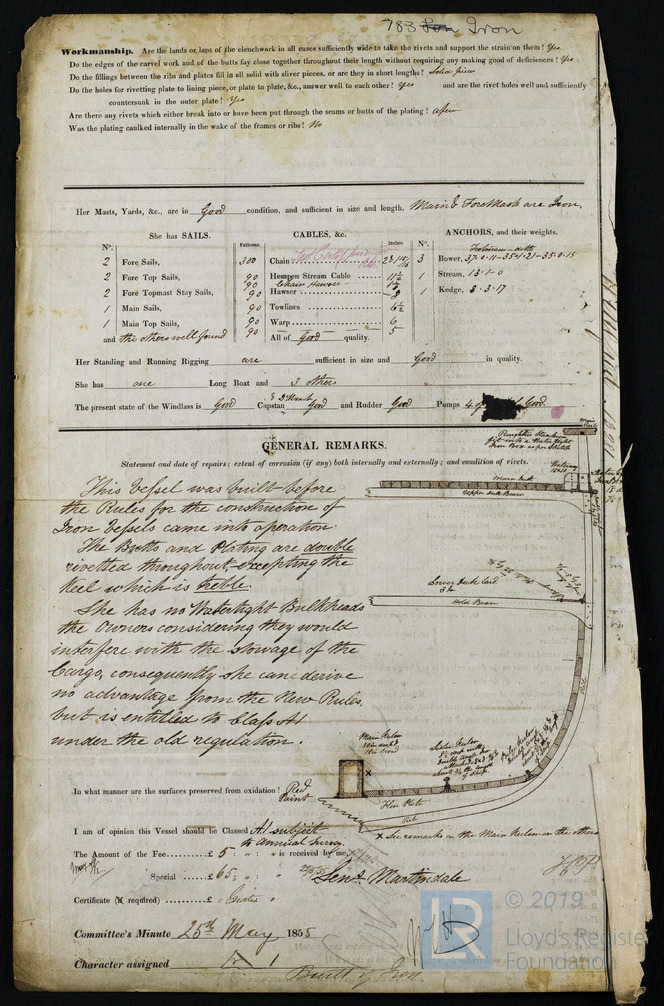 783 Iron
Workmanship. Are the lands or laps of the clenchwork in all cases sufficiently wide to take the rivets and support the strain on them? Yes
Do the edges of the carvel work and of the butts fay close together throughout their length without requiring any making good of deficiences? Yes.
Do the fillings between the ribs and plates fill in all solid with sliver pieces, or are they in short lengths? Solid pieces
Do the holes for rivetting plate to lining piece, or plate to plate, &c., answer well to each other? Yes and are the rivet holes well and sufficiently
countersunk in the outer plate? Yes
Are there any rivets which either break into or have been put through the seams or butts of the plating? a few
Was the plating caulked internally in the wake of the frames or ribs? No
Her Masts, Yards, &c., are in Good condition, and sufficient in size and length. Main & ForeMast are Iron.
She has SAILS.
N°.
2 Fore Sails,
2 Fore Top Sails,
2 Fore Topmast Stay Sails,
1 Main Sails,
1 Main Top Sails,
and the others well found
CABLES, &c.
Fathoms. Inches
300 Chain
90 Hempen Stream Cable 11½
90 Chain Hawser
90 Hawser 8
90 Towlines 6½
90 Warp 6
90 5
All of Good quality.
ANCHORS, and their weights.
N°.
3 Bower,
1 Stream, 13-1-0
1 Kedge, 3-3-17
Her Standing and Running Rigging are sufficient in size and Good in quality.
She has one Long Boat and 3 others
The present state of the Windlass is Good Capstan Good and Rudder Good Pumps 4 Good.
GENERAL REMARKS.
Statement and date of repairs; extent of corrosion (if any) both internally and externally; and condition of rivets.
This Vessel was built before
the Rules for the construction of
Iron Vessels came into operation.
The Butts and Plating are double
rivetted throughout, excepting the
Keel which is treble.
She has no Watertight Bulkheads
the Owners considering they would
interfere with the stowage of the
Cargo, consequently she cane derive
no advantage from the New Rules,
but is entitled to Class A1
under the old regulation.
Main Deck
Upper Deck Beam
Lower Deck laid
Hold Beam
Main Kelson
Floor Plate
Keel
x See remarks on the Main Kelson on the other
In what manner are the surfaces preserved from oxidation? Red Paint
I am of opinion this Vessel should be Classed A1 subject
to annual survey.
The Amount of the Fee £ 5 : " : " is received by me,
Special £ 65 : " : "
Martindale
Certificate (if required) £
Committee's Minute 25th May 1855
Character assigned A 1
Built of Iron
LR
© 2019
Lloyd's Register
Foundation